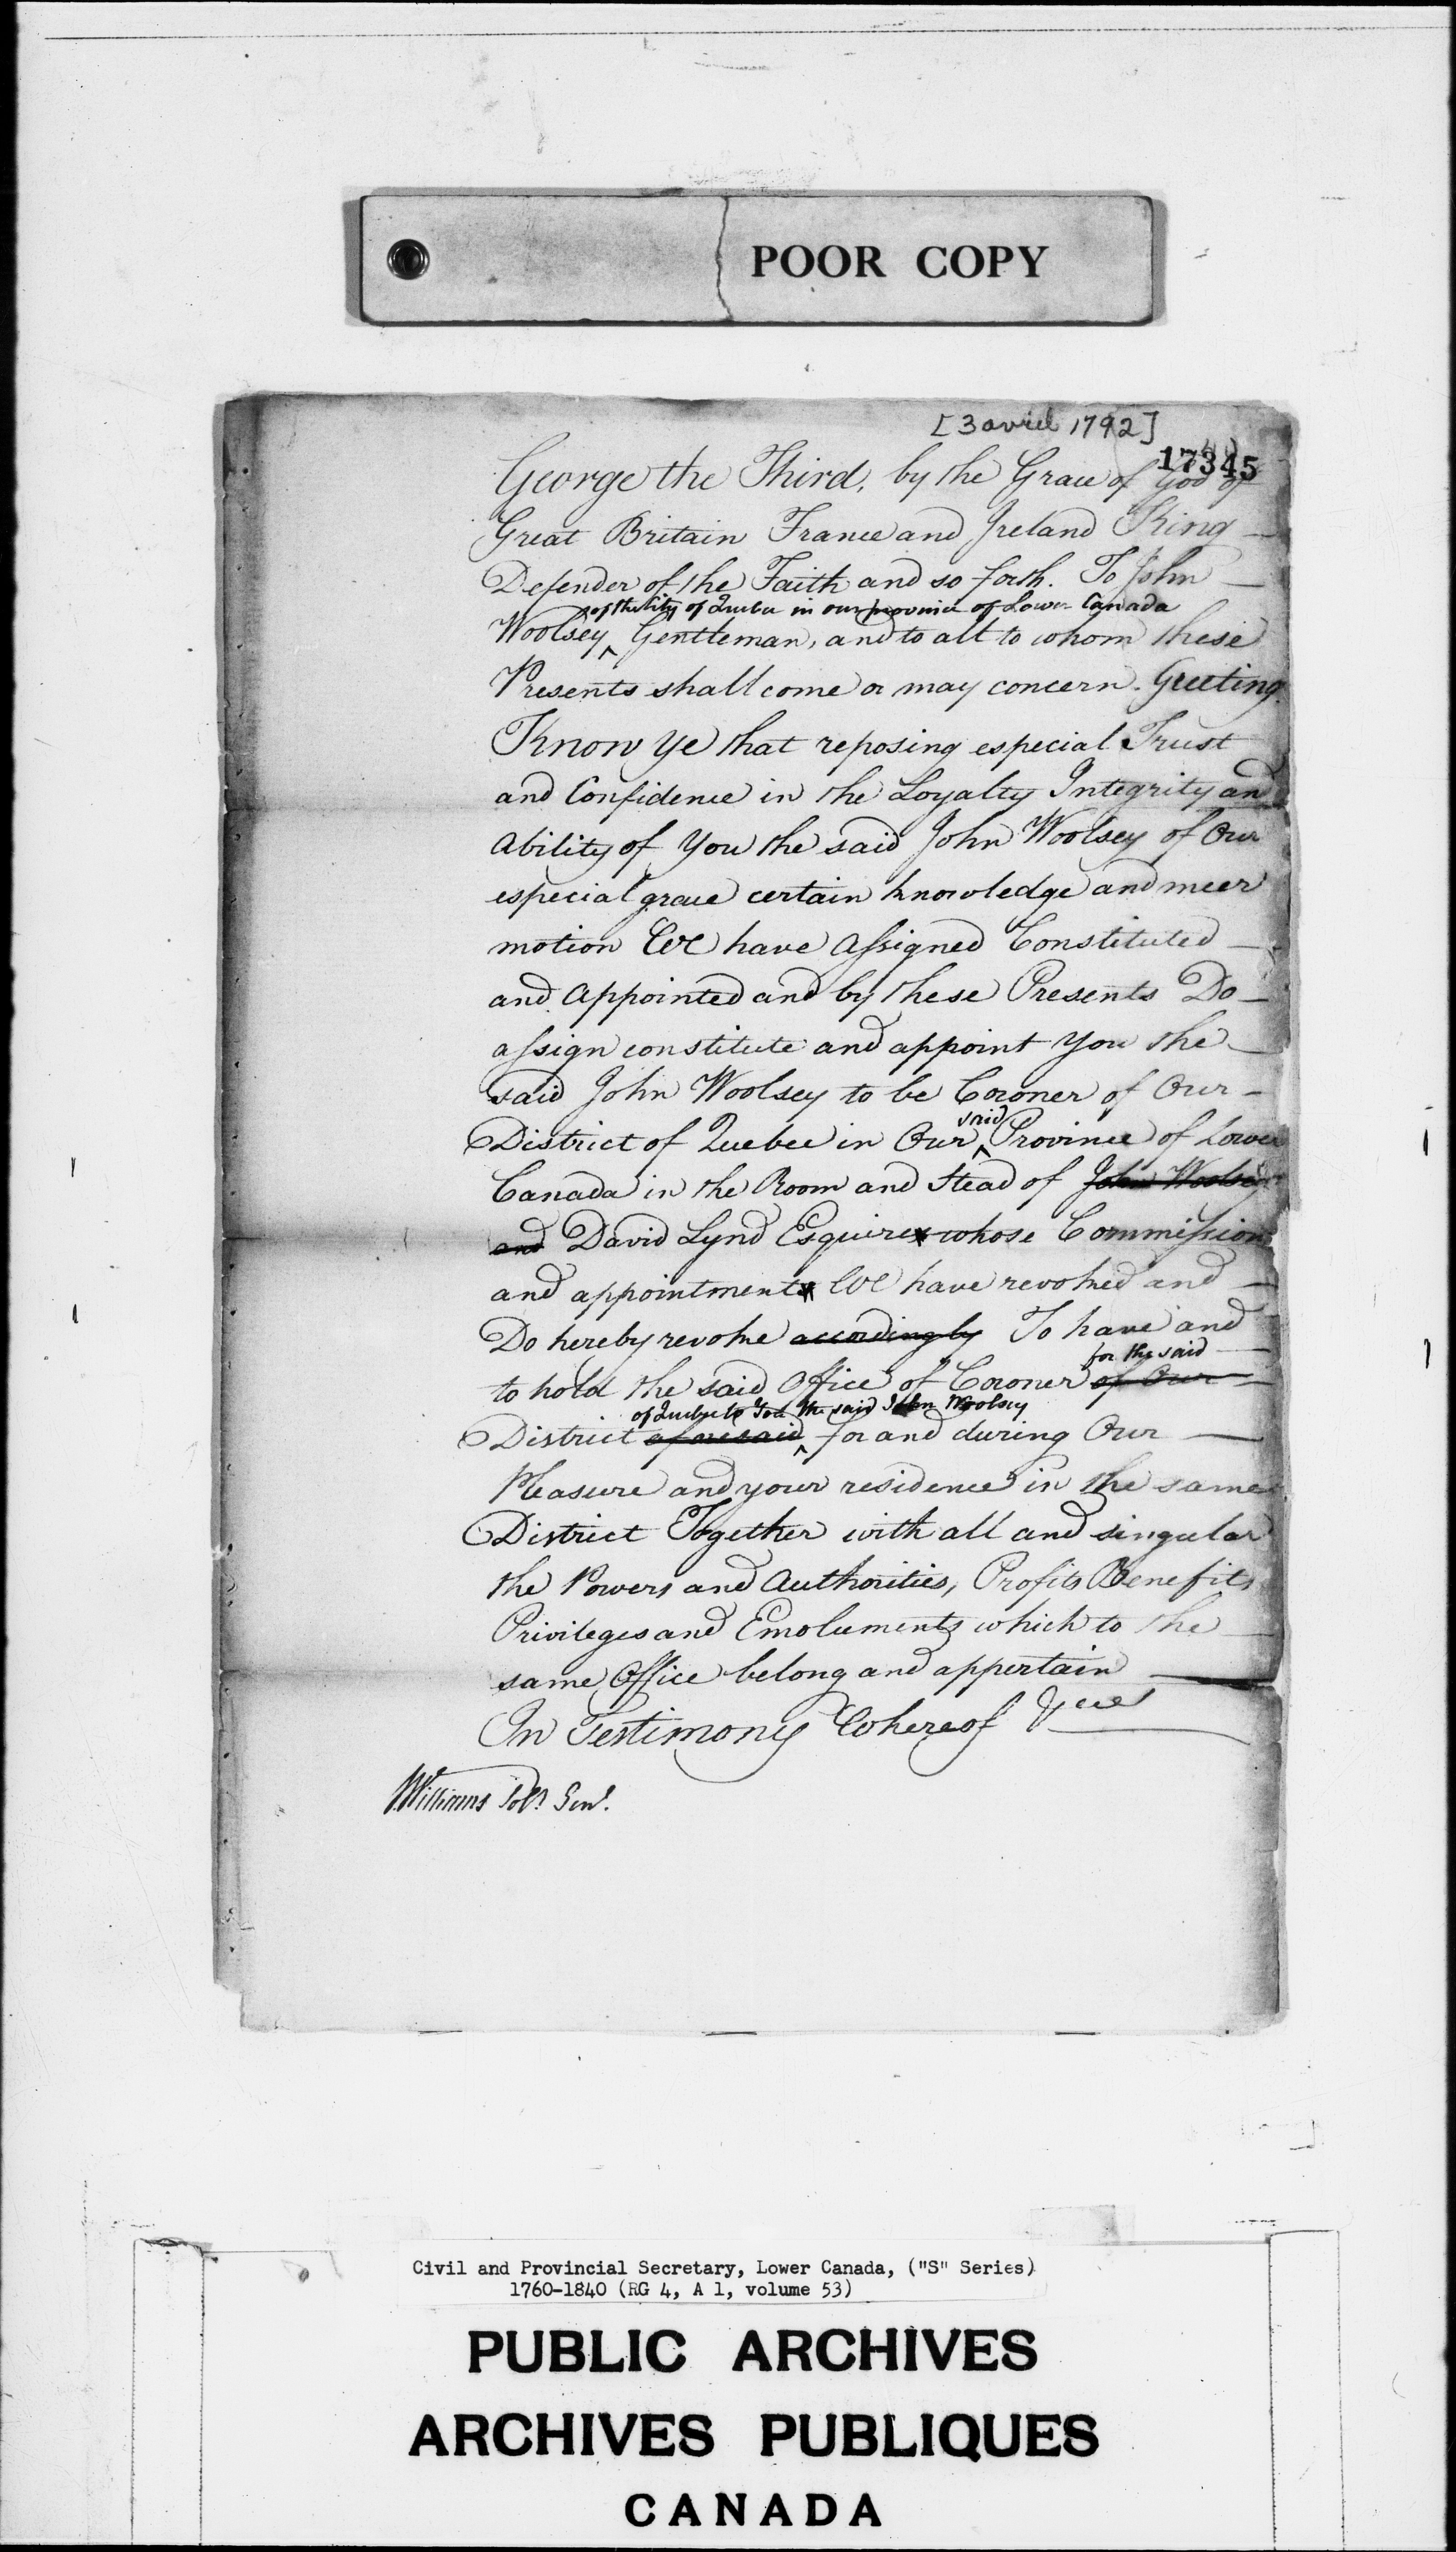 POOR COPY
[3 avril 1792]
17345
George the Third, by the Grace of God of
Great Britain France and Ireland King —
Defender of the Faith and so forth. To John —
of the City of Quebec in our province of Lower Canada
Woolsey ^ Gentleman, and to all to whom these
Presents shall come or may concern. Greeting.
Know Ye that reposing especial Trust
and Confidence in the Loyalty Integrity and
Ability of You the said John Woolsey of Our
especial grace certain knowledge and meer
motion We have Assigned Constituted —
and Appointed and by these Presents Do —
assign constitute and appoint You the —
said John Woolsey to be Coroner of Our —
said
District of Quebec in Our ^ Province of Lower
Canada in the Room and Stead of John Woolsey
and David Lynd Esquire whose Commission
and appointment We have revoked and —
Do hereby revoke accordingly To have and
for the said —
to hold the said Office of Coroner of Our —
of Quebec to You the said John Woolsey
District aforesaid ^ for and during Our —
Pleasure and your residence in the same
District Together with all and singular
the Powers and Authorities, Profits Benefits
Privileges and Emoluments which to the —
same Office belong and appertain —
In Testimony Whereof &ca
JWilliams Solr. Genl.
Civil and Provincial Secretary, Lower Canada, ("S" Series)
1760-1840 (RG 4, A 1, volume 53)
PUBLIC ARCHIVES
ARCHIVES PUBLIQUES
CANADA